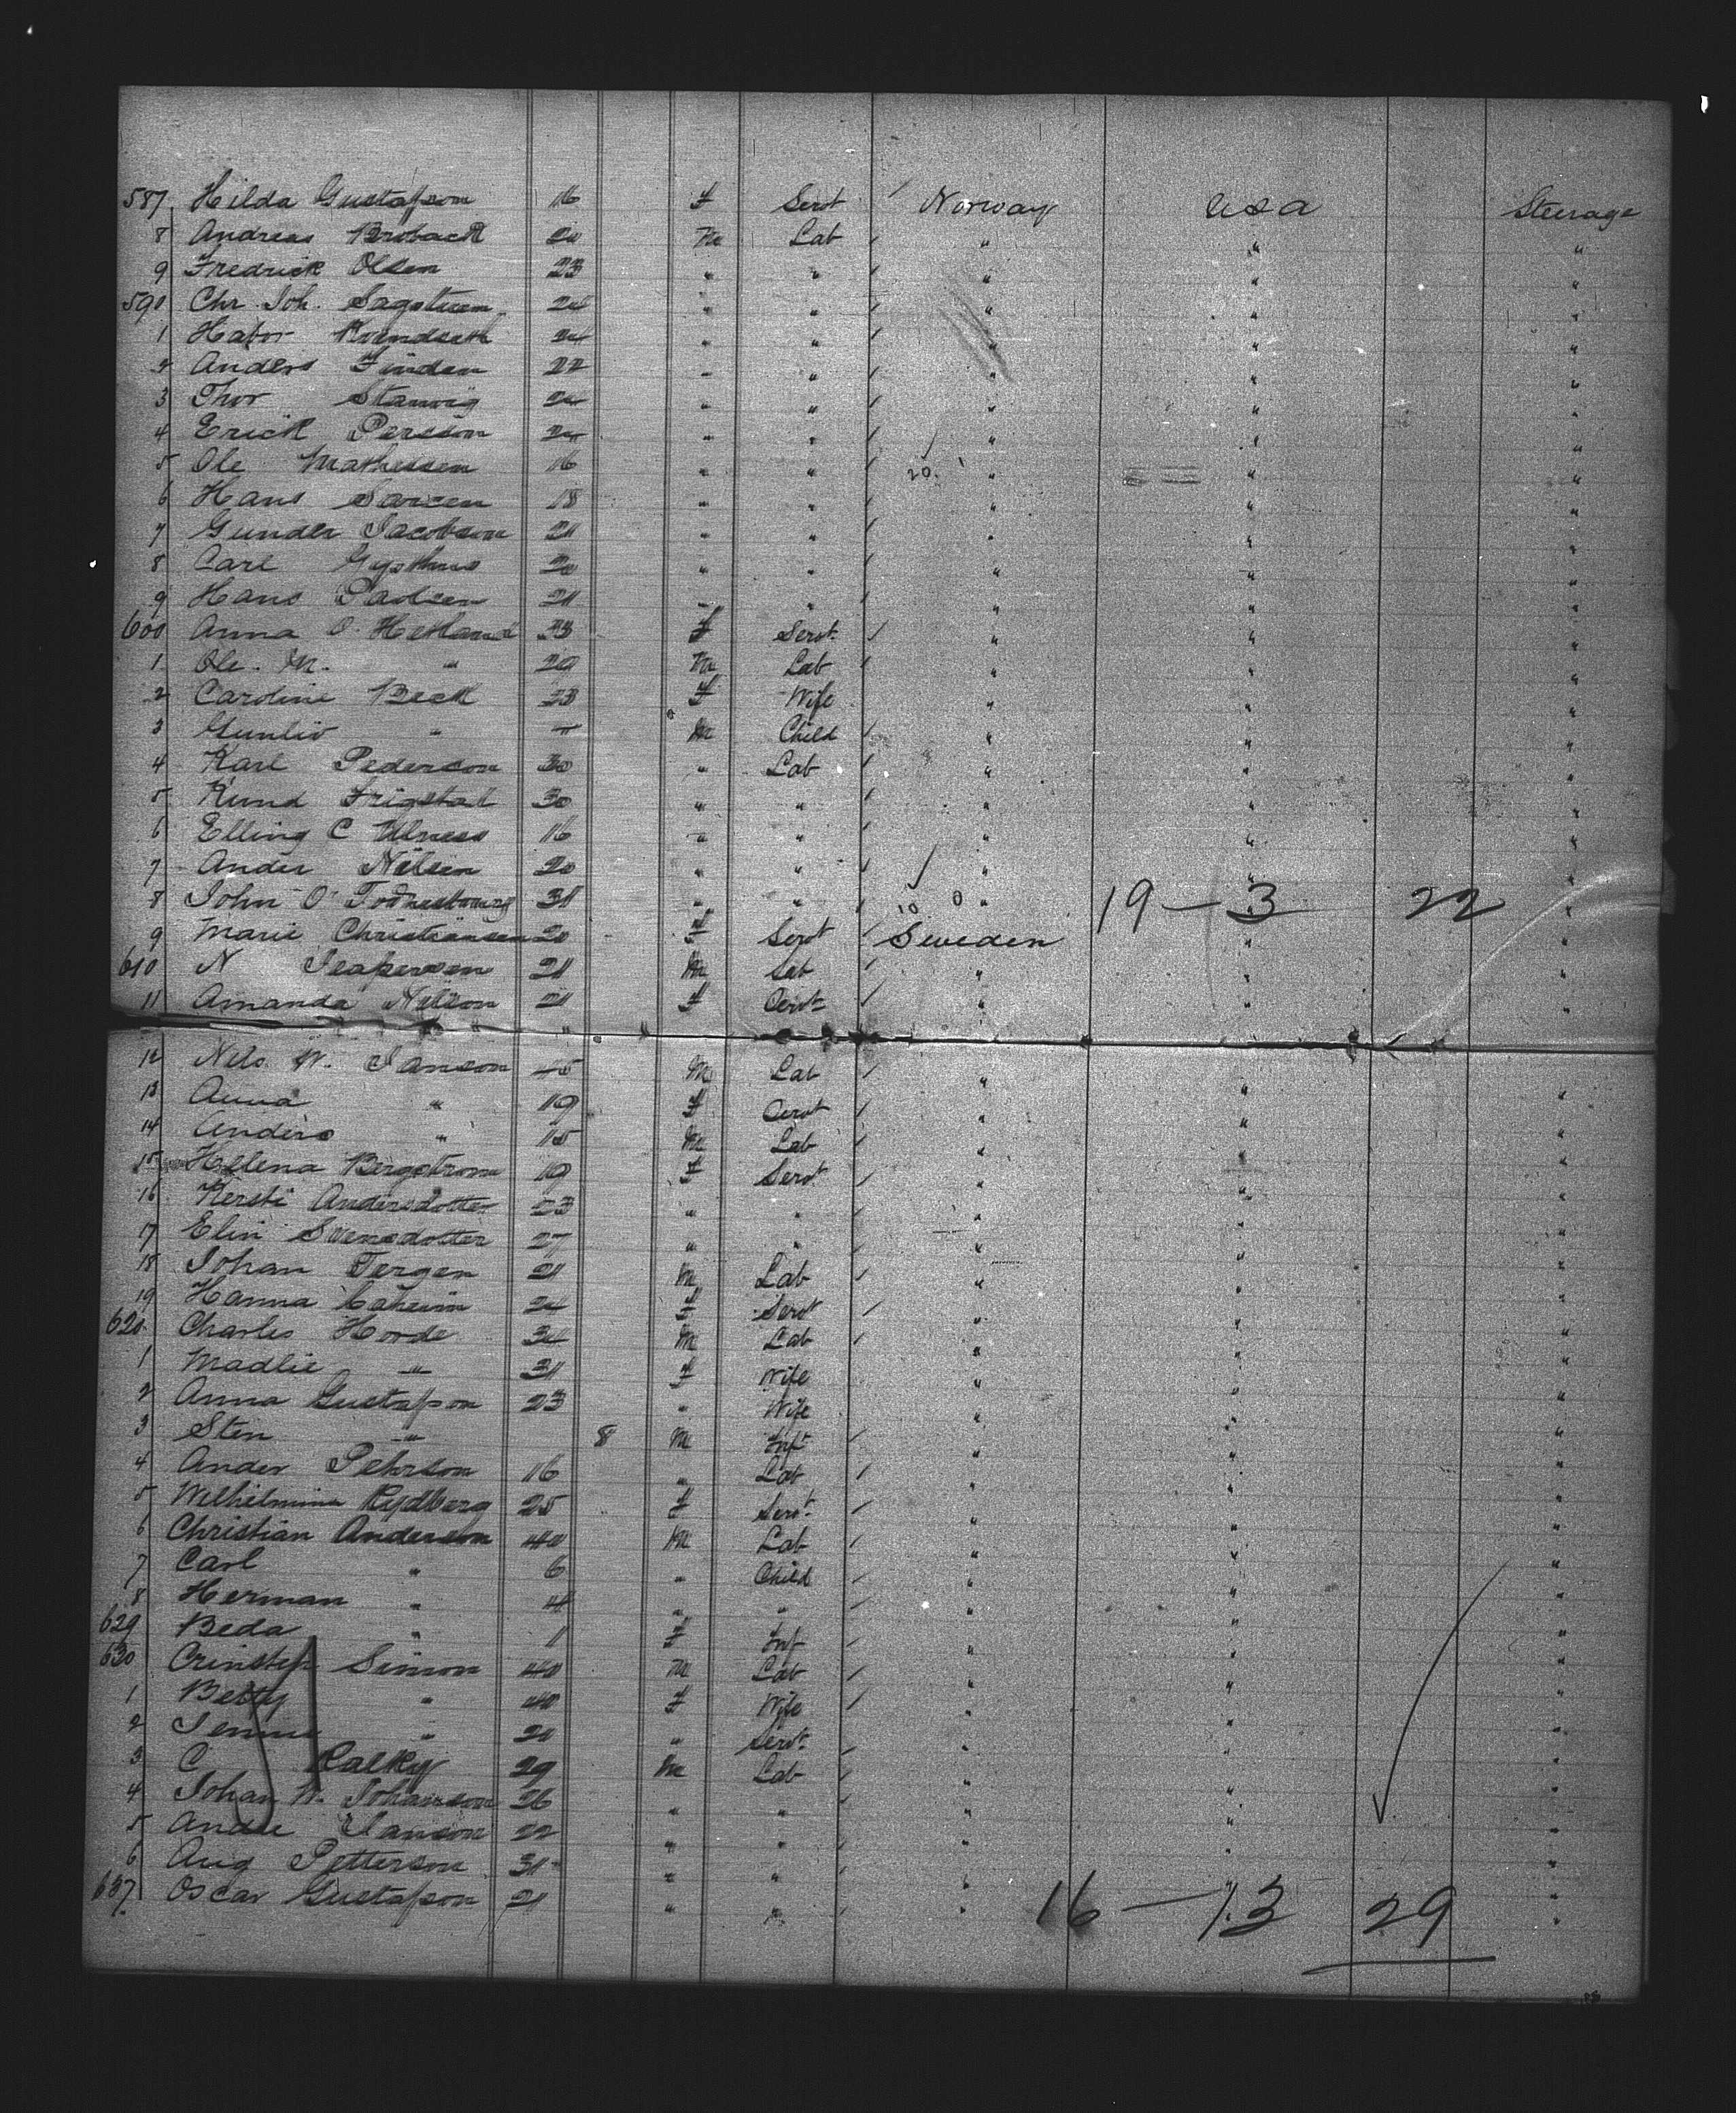 587 Hilda Gustafson 16 F Servt / Norway USA Steerage
8 Andreas Broback 20 M Lab / " " "
9 Fredrick Olsen 23 " " / " " "
590 Chr. Joh. " " / " " "
1 " " / " " "
2 Anders Finden 22 " " / " " "
3 Thor " " / " " "
4 Erick Persson " " / " " "
5 Ole Mathessen 16 " " / 20. " " "
6 Hans 18 " " / " " "
7 Gunder Jacobson 21 " " / " " "
8 Carl 20 " " / " " "
9 Hans 21 " " / " " "
600 Anna O. Hetland 23 F Servt / " " "
1 Ole. M. " 20 M Lab / " " "
2 Caroline Beck 23 F Wife " " "
3 Gunliv " M Child / " " "
4 Karl Pederson 30 " Lab / " " "
5 Knud Frigstat 30 " " / " " "
6 Elling C Ulness 16 " " / " " "
7 Ander Nelsen 20 " " / " " "
8 John O 31 " " / 10 0 " 19 — 3 22 "
9 Marie Christiansen 20 F Servt / Sweden " "
610 N 21 M Lab / " " "
11 Amanda Nelson 21 F Servt / " " "
12 Nels W. Janson 45 M Lab / " " "
13 Anna " 19 F Servt / " " "
14 Anders " 15 M Lab / " " "
15 Hellena Bergstrom 19 F Servt / " " "
16 Kersti Andersdotter 23 " " / " " "
17 Elin Svensdotter 27 " " / " " "
18 Johan Tergen 21 M Lab / " " "
19 Hanna F Servt / " " "
620 Charles Horde M Lab / " " "
1 Madlie " 31 F Wife " " "
2 Anna Gustafson 23 " Wife " " "
3 Sten " 8 M Inf / " " "
4 Ander Pehrson 16 " Lab / " " "
5 Wilhelmina Rydberg 25 F Servt / " " "
6 Christian Anderson 40 M Lab / " " "
7 Carl " 6 " Child / " " "
8 Herman " 4 " " / " " "
629 Beda " 1 F Inf / " " "
630 Simon 40 M Lab / " " "
1 Betty " 40 F Wife / " " "
2 Jennie " 21 " Servt / " " "
3 C Kalky 29 M Lab / " " "
4 Johan W. Johanson 26 " " / " " "
5 Ander Janson 22 " " / " " "
6 Aug Petterson 31 " " / " " "
637. Oscar Gustafson 21 " " / " 16 — 13 29 "